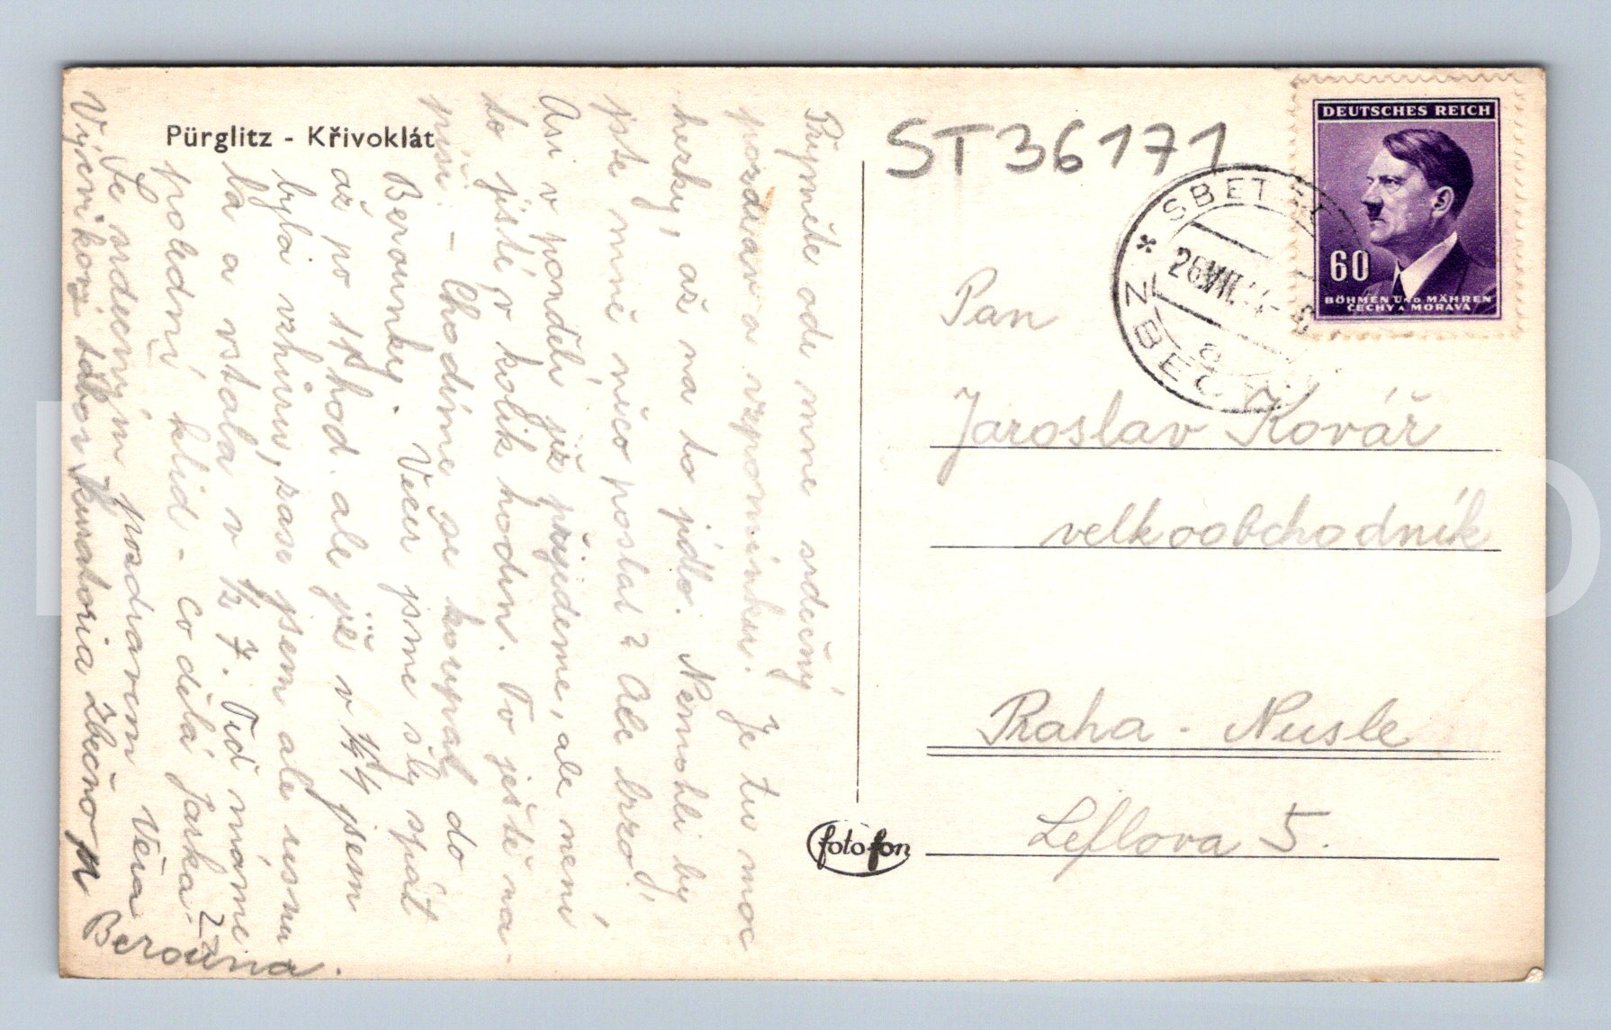 Pürglitz - Křivoklát
ST36171
DEUTSCHES REICH
60
BÖHMEN UND MÄHREN
ČECHY A MORAVA
ZBEČNO
26 VII
a
Pan
Jaroslav Kovář
velkoobchodník
Praha - Nusle
Leflova 5.
fotofon
Přijměte ode mne srdečný
pozdrav a vzpomínku. Je tu moc
hezky, až na to jídlo. Nemohli by
jste mně něco poslat? Ale brzo!
Asi v pondělí již přijedeme, ale není
to jisté v kolik hodin. To ještě na-
píši. - Chodíme se koupat do
Berounky. Večer jsme šly spát
až po 11 hod. ale již v jsem
byla vzhůru, zase jsem ale usnu
la a vstala v ½ 7. Teď máme
polední klid - co dělá Jarka?
Se srdečným pozdravem Věra
Výcvikový tábor Kuratoria Zbečno n
Berouna.